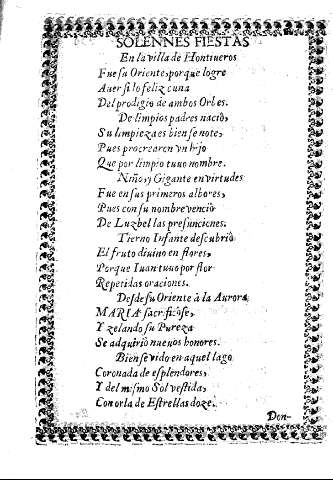 SOLENNES FIESTAS
En la villa de Hontiueros
Fue su Oriente, porque logre
Auer si lo feliz cuna
Del prodigio de ambos Orbes.
De limpios padres naciò,
Su limpieza es bien se note,
Pues procrearon vn hijo
Que por limpio tuuo nombre.
Niño, y Gigante en virtudes
Fue en sus primeros albores,
Pues con su nombre venciò
De Luzbel las presunciones.
Tierno Infante descubriò
El fruto diuino en flores,
Porque Iuan tuuo por flor
Repetidas oraciones.
Desde su Oriente à la Aurora
MARIA sacrificòse,
Y zelando su Pureza
Se adquiriò nueuos honores.
Bien se vido en aquel lago
Coronada de esplendores,
Y del mismo Sol vestida,
Con orla de Estrellas doze.
Don-